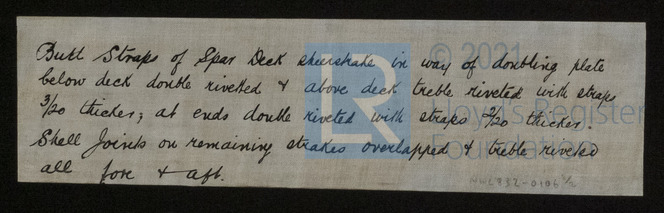 Butt Straps of Spar Deck sheerstrake in way of doubling plate
below deck double rivetted & above deck treble riveted with straps
3/20 thicker; at ends double riveted with straps 2/20 thicker.
Shell Joints on remaining strakes overlapped & treble riveted
all fore & aft.
© 2021
LR
Lloyd's Register
Foundation